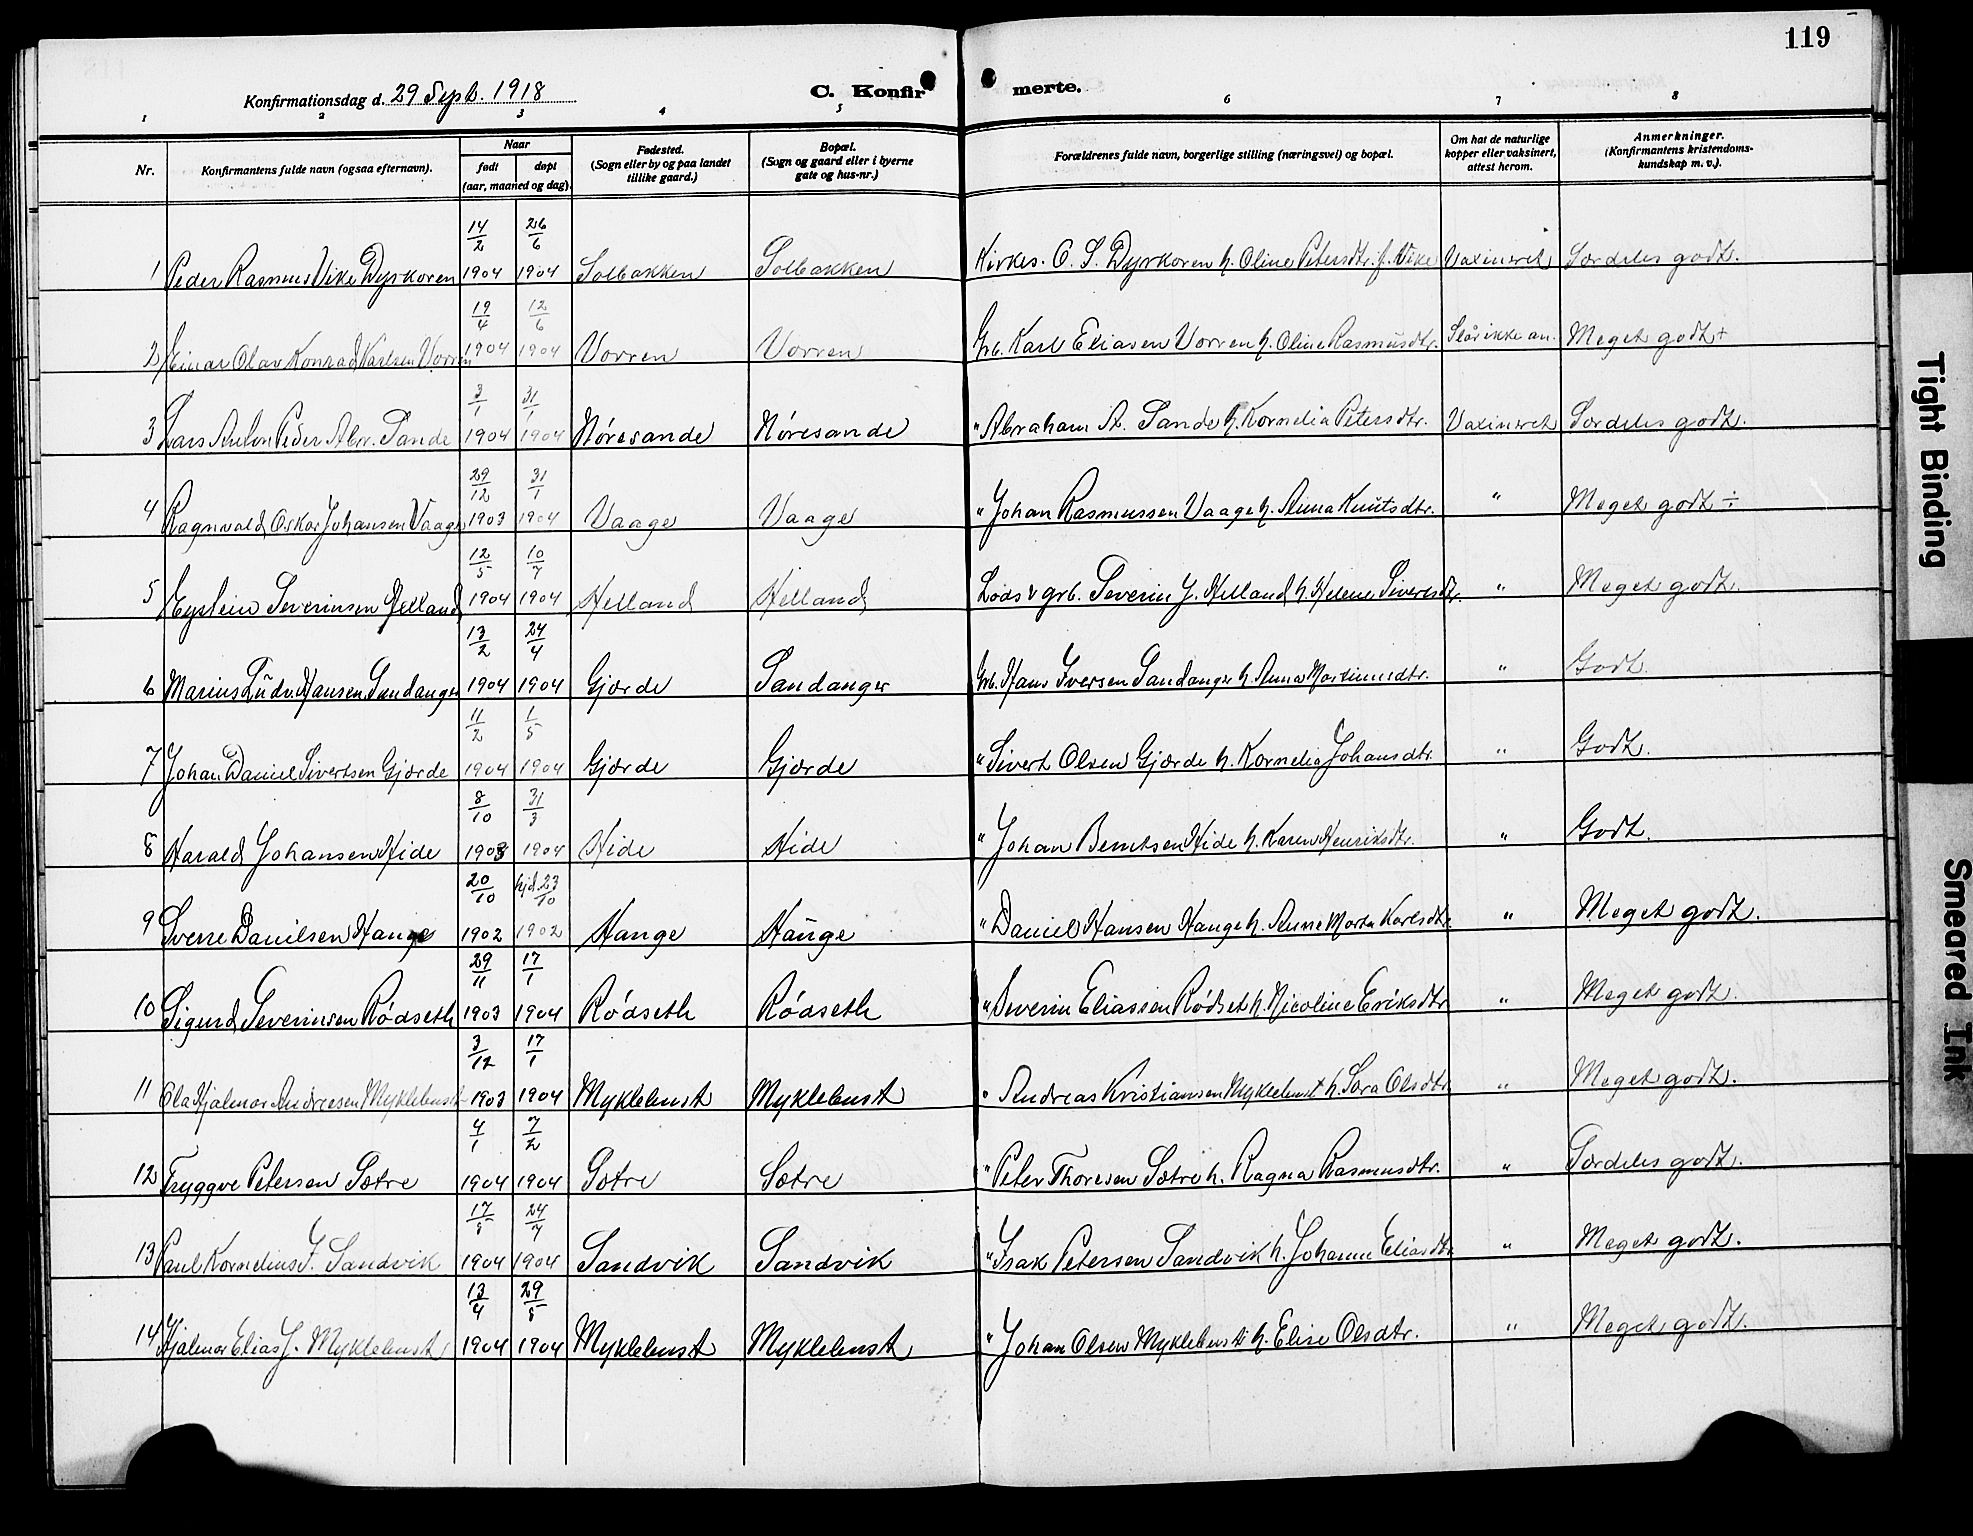 119
Konfirmationsdag d. 29 Sept. 1918 C. Konfirmerte.
1 2 3 4 5 6 7 8
Nr. Konfirmantens fulde navn (ogsaa efternavn). Naar født døpt (aar, maaned og dag). Fødested. (Sogn eller by og paa landet tillike gaard.) Bopæl. (Sogn og gaard eller i byerne gate og hus-nr.) Forældrenes fulde navn, borgerlige stilling (næringsvei) og bopæl. Om hat de naturlige kopper eller vaksinert, attest herom. Anmerkninger. (Konfirmantens kristendomskundskap m. v.).
1 Peder Rasmus Vike Dyrkoren 14/2 1904 26/6 1904 Solbakken Solbakken Kirkes. O. S. Dyrkoren h. Oline Petersdtr. f. Vike Vaxineret Særdeles godt.
2 Einar Olav Konrad Karlsen Vorren 19/4 1904 12/6 1904 Vorren Vorren Grb. Karl Eliasen Vorren h. Oline Rasmusdtr. Slår ikke an. Meget godt +
3 Lars Anton Peder Abr. Sande 3/1 1904 31/1 1904 Nøresande Nøresande " Abraham A. Sande h. Kornelia Petersdtr. Vaxineret Særdeles godt.
4 Ragnvald Oskar Johansen Vaage 29/12 1903 31/1 1904 Vaage Vaage " Johan Rasmussen Vaage h. Anna Knutsdtr. " Meget godt ÷
5 Eystein Severinsen Helland 12/5 1904 10/7 1904 Helland Helland Lods & grb. Severin J. Helland h. Helene Sivertsdtr. " Meget godt.
6 Marius Ludv. Hansen Sandanger 13/2 1904 24/4 1904 Gjærde Sandanger Grb. Hans Iversen Sandanger h. Anna Martinusdtr. " Godt.
7 Johan Daniel Sivertsen Gjærde 11/2 1904 1/5 1904 Gjærde Gjærde " Sivert Olsen Gjærde h. Kornelia Johansdtr. " Godt.
8 Harald Johansen Hide 8/10 1903 31/3 1904 Hide Hide " Johan Berntsen Hide h. Karen Henriksdtr. " Godt.
9 Sverre Danilsen Hauge 20/10 1902 hjd. 23/10 1902 Hauge Hauge " Daniel Hansen Hauge h. Anne Marta Karlsdtr. " Meget godt.
10 Sigurd Severinsen Rødseth 29/11 1903 17/1 1904 Rødseth Rødseth " Severin Eliassen Rødset h. Nicoline Eriksdtr. " Meget godt.
11 Ola Hjalmar Andresen Myklebust 3/12 1903 17/1 1904 Myklebust Myklebust " Andreas Kristiansen Myklebust h. Sara Olsdtr. " Meget godt.
12 Tryggve Petersen Sætre 4/1 1904 7/2 1904 Sætre Sætre " Peter Thoresen Sætre h. Ragna Rasmusdtr. " Særdeles godt.
13 Paul Kornelius I. Sandvik 17/5 1904 24/7 1904 Sandvik Sandvik " Isak Petersen Sandvik h. Johanne Eliasdtr. " Meget godt.
14 Hjalmar Elias J. Myklebust 13/4 1904 29/5 1904 Myklebust Myklebust " Johan Olsen Myklebust h. Elise Olsdtr. " Meget godt.
Tight Binding
Smeared Ink